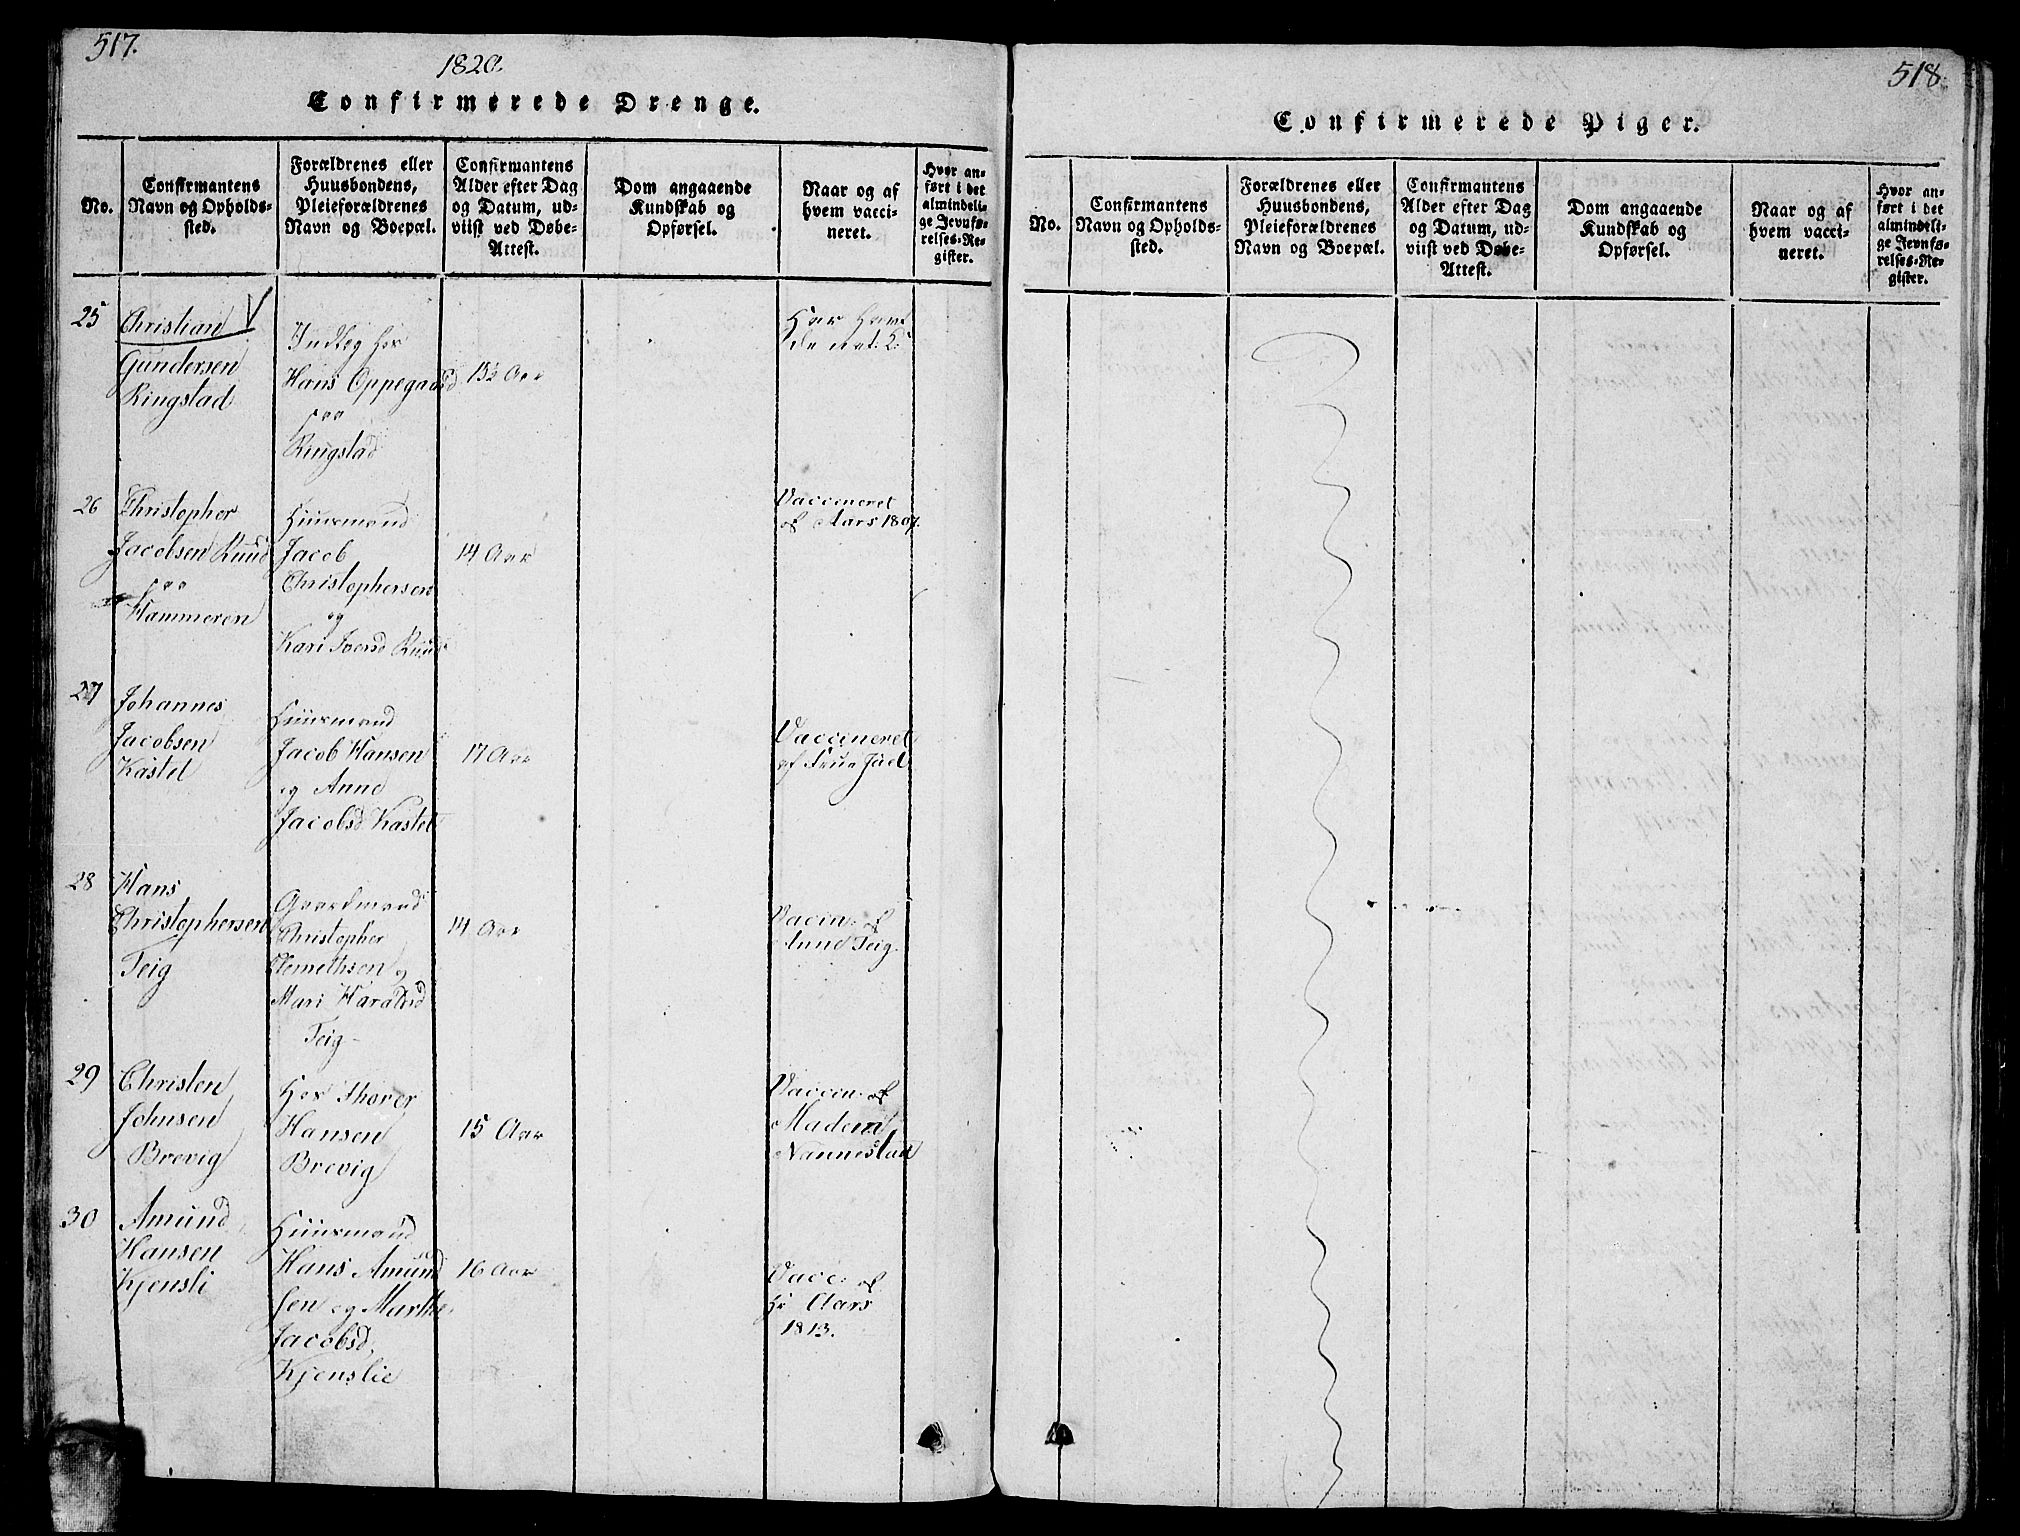 517.
1820
Confirmerede Drenge.
No.
Confirmantens
Navn og Opholds-
sted.
Forældrenes eller
Huusbondens,
Pleieforældrenes
Navn og Boepæl.
Confirmantens
Alder efter Dag
og Datum, ud-
viist ved Døbe-
Attest.
Dom angaaende
Kundskab og
Opførsel.
Naar og af
hvem vacci-
neret.
Hvor an-
ført i det
almindeli-
ge Jevnfø-
relses-Re-
gister.
25
Christian
Gundersen
Ringstad
Indteg hos
Hans Oppegaard
paa
Ringstad
15½ Aar
Har Hav
de nat. K:
26
Christopher
Jacobsen Ruud
paa
Hammeren
Huusmand
Jacob
Christophersen
og
Kari Iversd Ruud
14 Aar
Vacceneret
af Aars 1807.
27
Johannes
Jacobsen
Kastet
Huusmand
Jacob Hansen
og Anne
Jacobsd Kastet
17 Aar
Vaccineret
af Frue Juel
28
Hans
Christophersen
Teig
Gaardmand
Christopher
Clemethsen og
Mari Haraldsd
Teig
14 Aar
Vaccin: af
Amund Teig.
29
Christen
Johnsen
Brevig
Hos Thorer
Hansen
Brevig
15 Aar
Vaccin: af
Madem
Nannestad
30
Amund
Hansen
Kjensli
Huusmand
Hans Amund
sen og Marthe
Jacobsd.
Kjenslie
16 Aar
Vacc: af
Hr Aars
1813.
518.
Confirmerede Piger.
No.
Confirmantens
Navn og Opholds-
sted.
Forældrenes eller
Huusbondens,
Pleieforældrenes
Navn og Boepæl.
Confirmantens
Alder efter Dag
og Datum, ud-
viist ved Døbe-
Attest.
Dom angaaende
Kundskab og
Opførsel.
Naar og af
hvem vacci-
neret.
Hvor an-
ført i det
almindeli-
ge Jevnfø-
relses-Re-
gister.